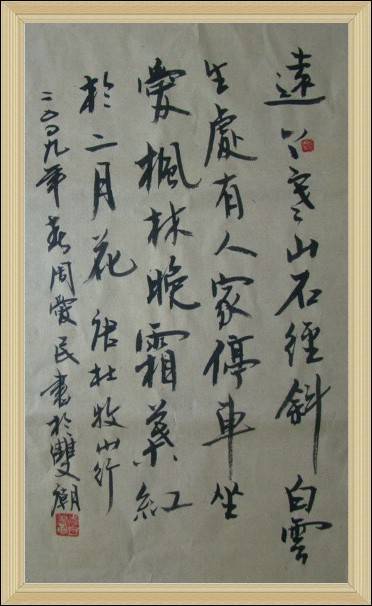 遠上寒山石徑斜白雲
生處有人家停車坐
愛楓林晚霜葉紅
於二月花唐杜牧山行
二〇〇九年春周愛民書於雙廟